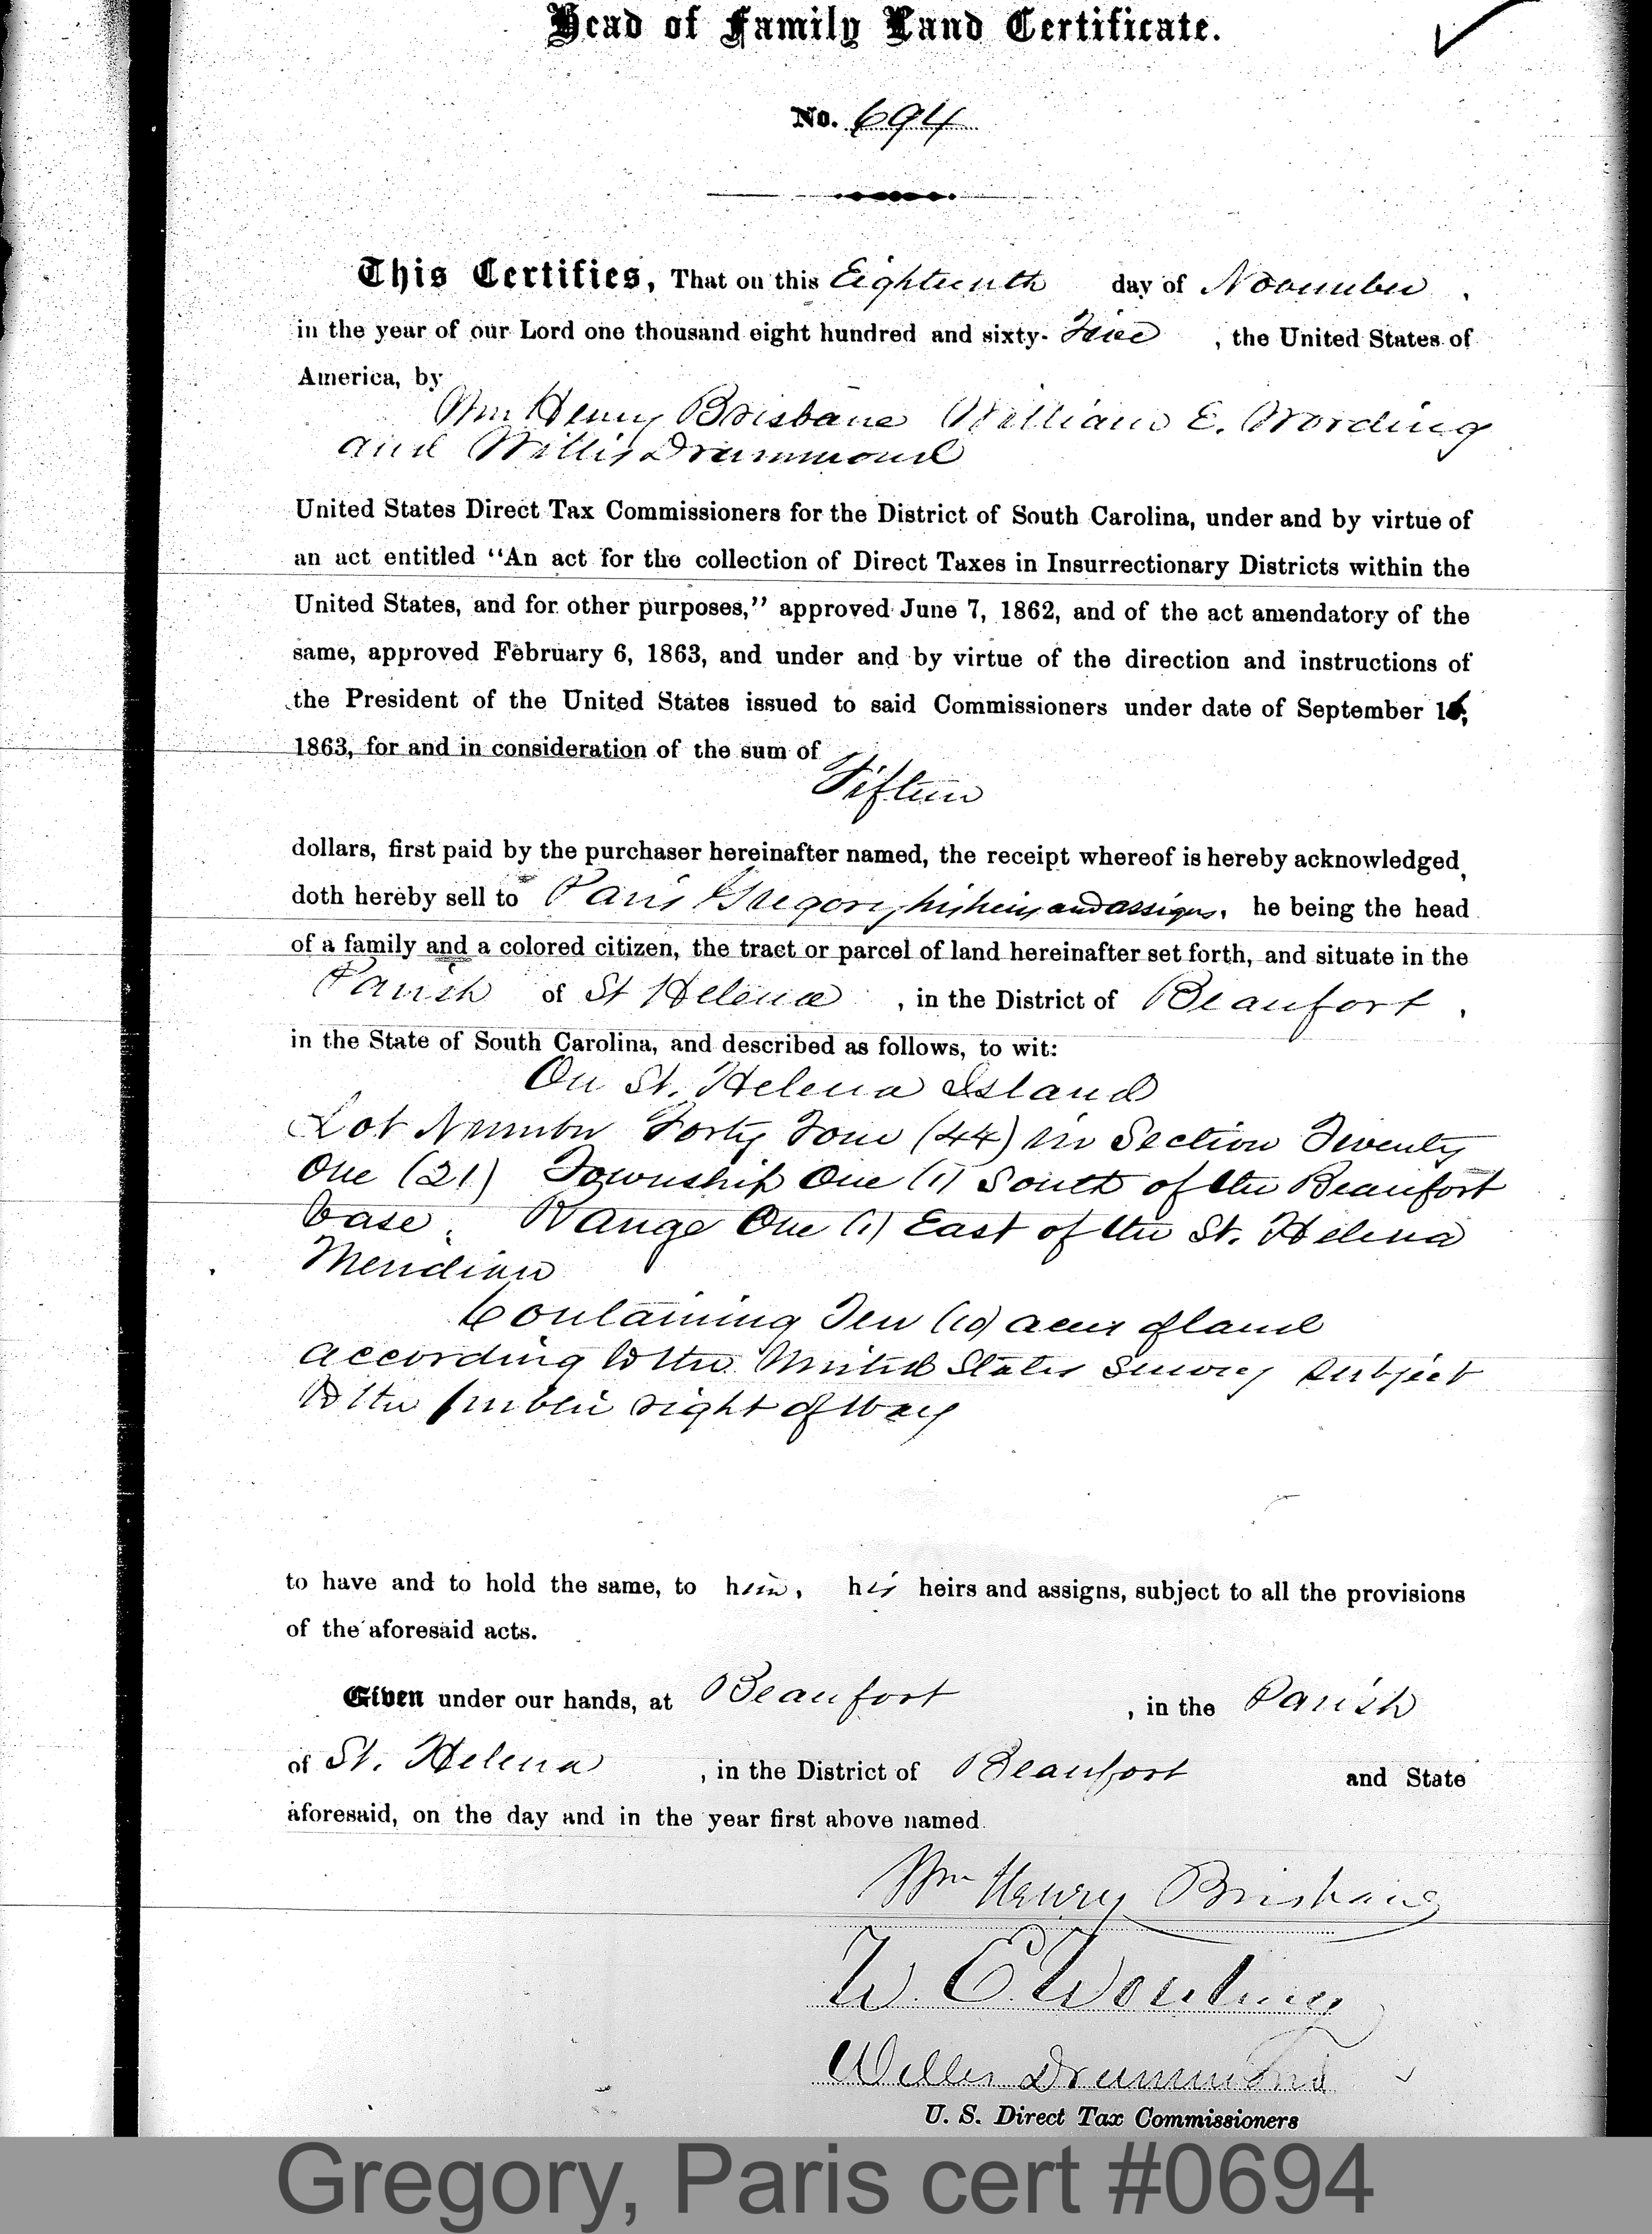 Head of Family Land Certificate.
No. 694
This Certifies, That on this Eighteenth day of November,
in the year of our Lord one thousand eight hundred and sixty-Five, the United States of
America, by
Wm Henry Brisbane William E. Wording
and Willis Drummond
United States Direct Tax Commissioners for the District of South Carolina, under and by virtue of
an act entitled "An act for the collection of Direct Taxes in Insurrectionary Districts within the
United States, and for other purposes," approved June 7, 1862, and of the act amendatory of the
same, approved February 6, 1863, and under and by virtue of the direction and instructions of
the President of the United States issued to said Commissioners under date of September 16,
1863, for and in consideration of the sum of
Fifteen
dollars, first paid by the purchaser hereinafter named, the receipt whereof is hereby acknowledged,
doth hereby sell to Paris Gregory, his heirs and assigns, he being the head
of a family and a colored citizen, the tract or parcel of land hereinafter set forth, and situate in the
Parish of St Helena, in the District of Beaufort,
in the State of South Carolina, and described as follows, to wit:
On St. Helena Island
Lot Number Forty Four (44) in Section Twenty
One (21) Township One (1) South of the Beaufort
base. Range One (1) East of the St. Helena
Meridian
Containing Ten (10) acres of land
according to the United States Survey subject
to the public right of way
to have and to hold the same, to him, his heirs and assigns, subject to all the provisions
of the aforesaid acts.
Given under our hands, at Beaufort, in the Parish
of St. Helena, in the District of Beaufort and State
aforesaid, on the day and in the year first above named.
Wm Henry Brisbane
W. E. Wording
Willis Drummond
U. S. Direct Tax Commissioners
Gregory, Paris cert #0694